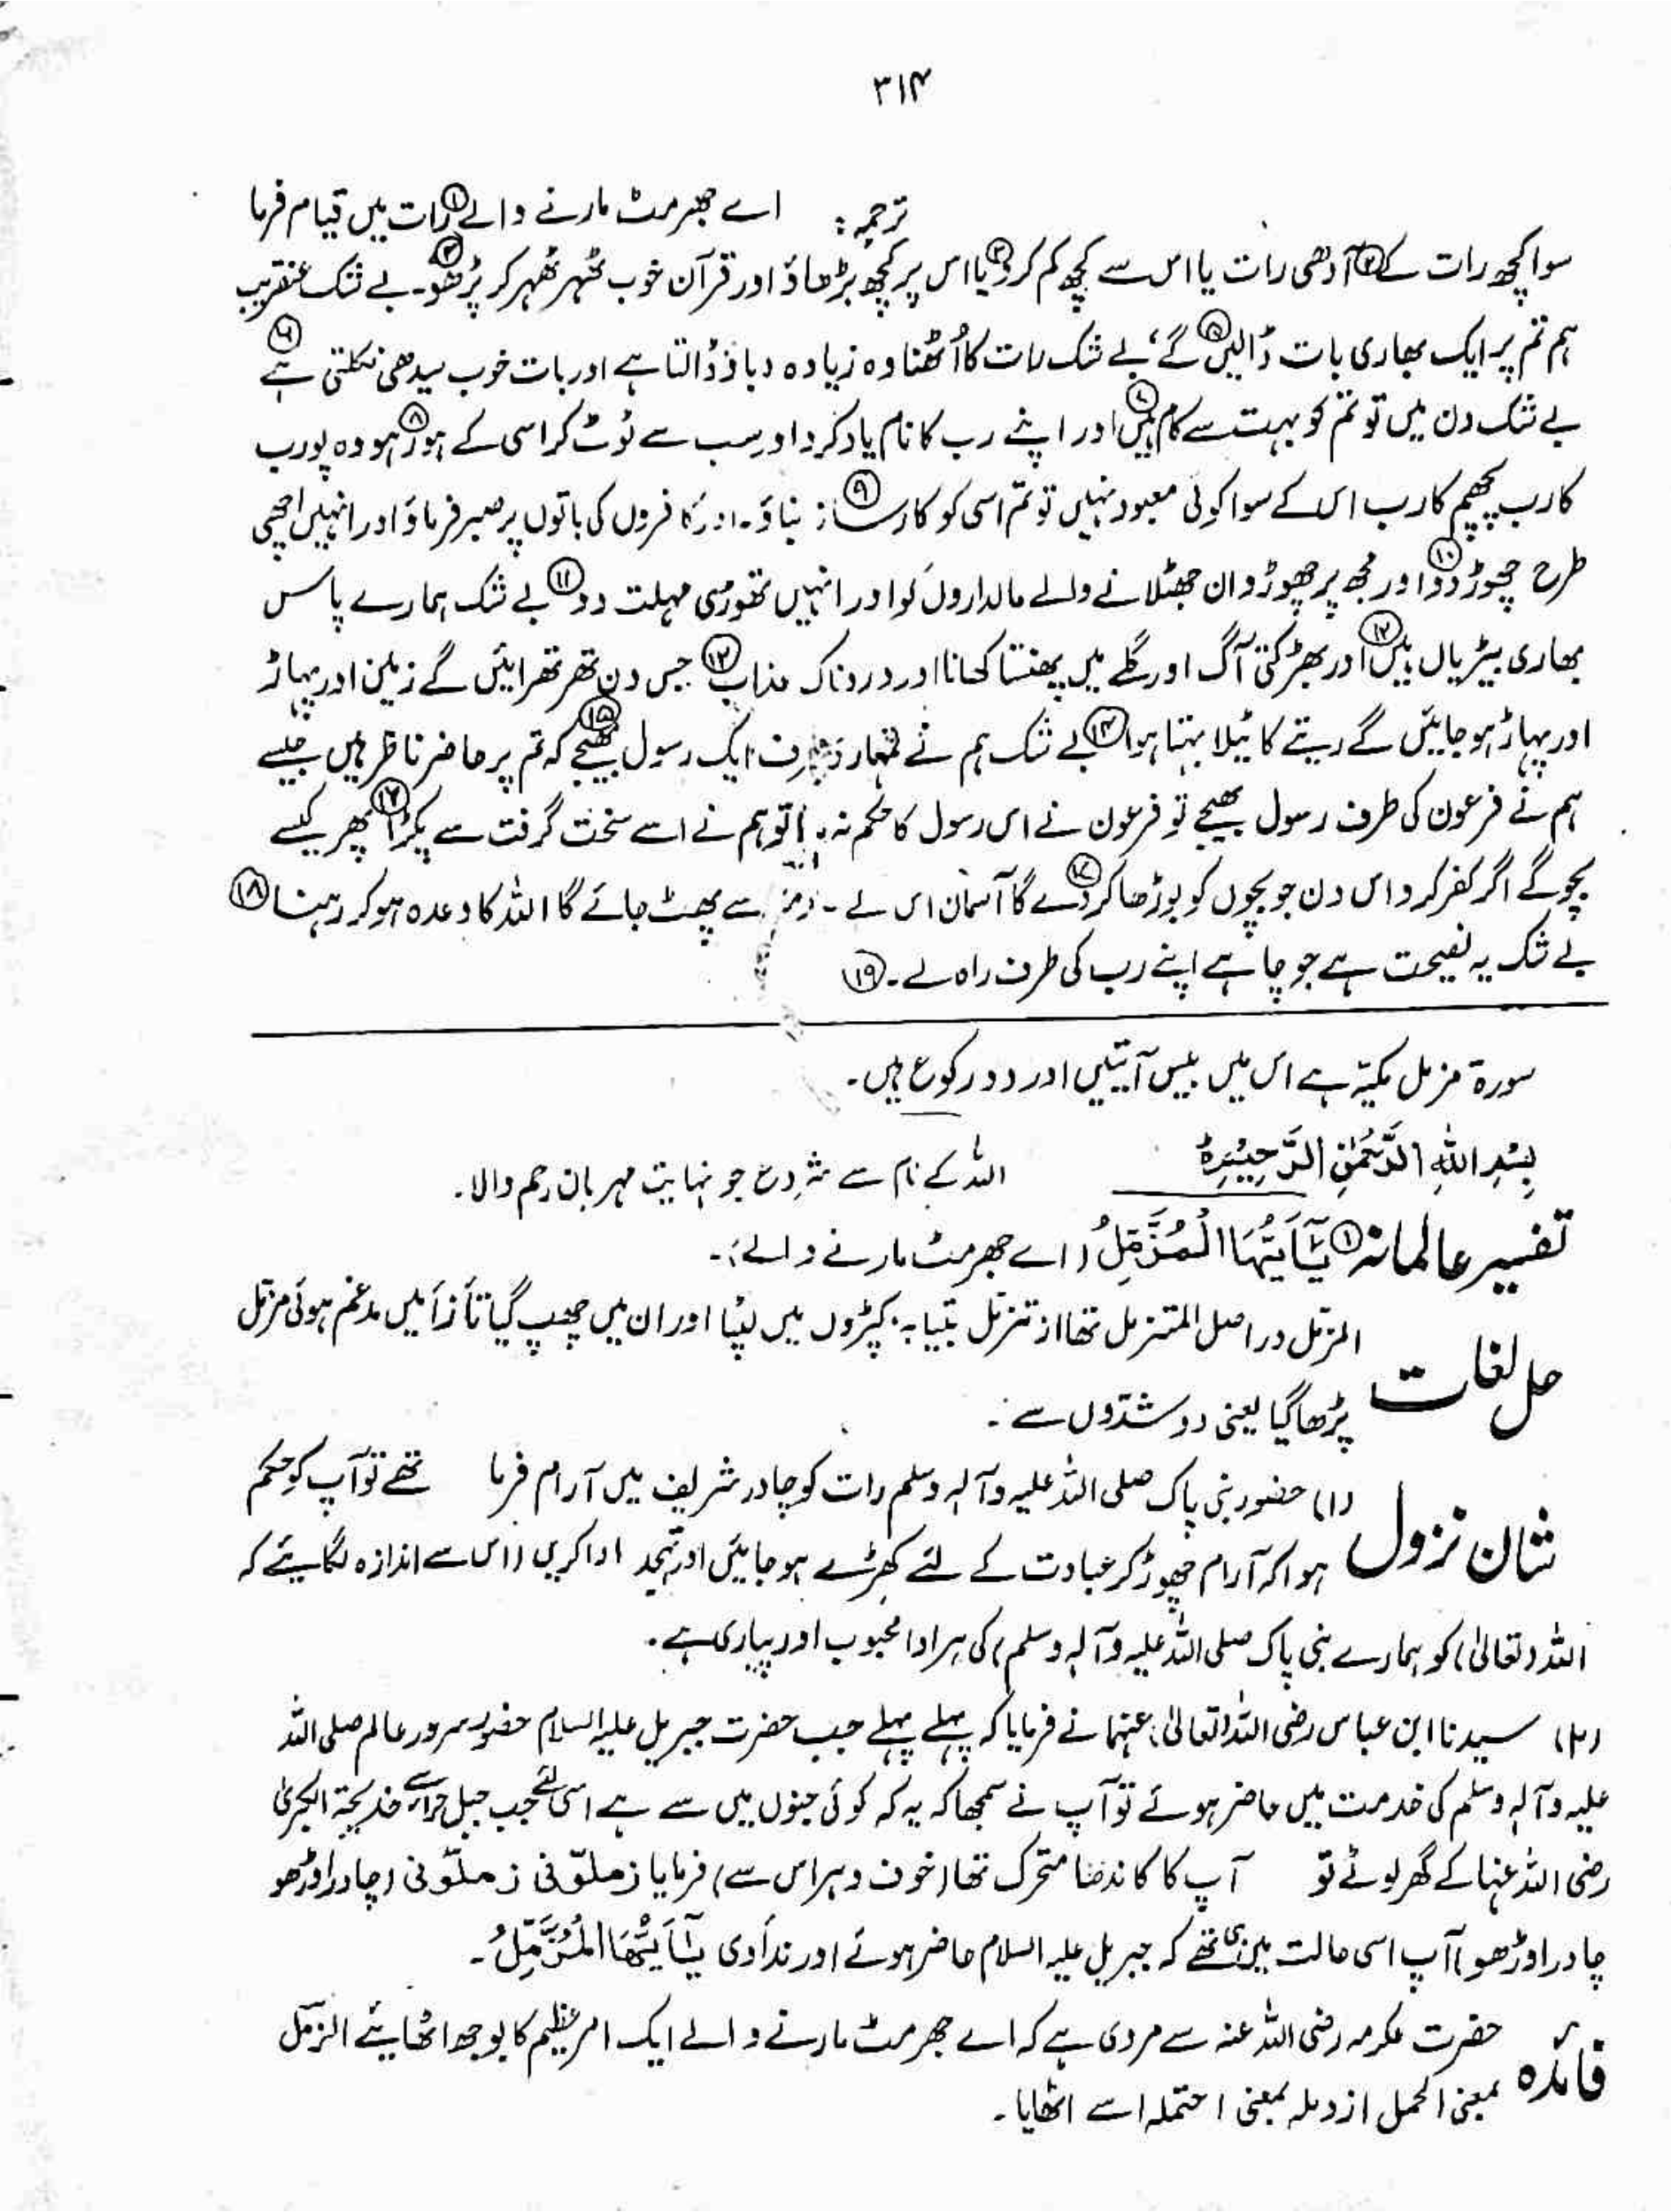 ۳۱۴
ترجمہ: اے جھرمٹ مارنے والے ① رات میں قیام فرما
سوا کچھ رات کے ② آدھی رات یا اس سے کچھ کم کرو ③ یا اس پر کچھ بڑھاؤ اور قرآن خوب ٹھہر ٹھہر کر پڑھو ④۔ بے شک عنقریب
ہم تم پر ایک بھاری بات ڈالیں گے ⑤، بے شک رات کا اُٹھنا وہ زیادہ دباؤ ڈالتا ہے اور بات خوب سیدھی نکلتی ہے ⑥
بے شک دن میں تو تم کو بہت سے کام ہیں ⑦ اور اپنے رب کا نام یاد کرو اور سب سے ٹوٹ کر اسی کے ہو رہو ⑧ وہ پورب
کا رب پچھم کا رب اس کے سوا کوئی معبود نہیں تو تم اسی کو کارساز بناؤ ⑨۔ اور کافروں کی باتوں پر صبر فرماؤ اور انہیں اچھی
طرح چھوڑ دو ⑩ اور مجھ پر چھوڑ دو ان جھٹلانے والے مالداروں کو اور انہیں تھوڑی مہلت دو ⑪ بے شک ہمارے پاس
بھاری بیڑیاں ہیں ⑫ اور بھڑکتی آگ اور گلے میں پھنستا کھانا اور دردناک عذاب ⑬ جس دن تھرتھرائیں گے زمین اور پہاڑ
اور پہاڑ ہو جائیں گے ریتے کا ٹیلا بہتا ہوا ⑭ بے شک ہم نے تمہاری طرف ایک رسول بھیجے ⑮ کہ تم پر حاضر ناظر ہیں جیسے
ہم نے فرعون کی طرف رسول بھیجے تو فرعون نے اس رسول کا حکم نہ تو ہم نے اسے سخت گرفت سے پکڑا ⑯ پھر کیسے
بچو گے اگر کفر کرو اس دن جو بچوں کو بوڑھا کر دے گا ⑰ آسمان اس کے سے پھٹ جائے گا اللہ کا وعدہ ہو کر رہنا ⑱
بے شک یہ نصیحت ہے جو چاہے اپنے رب کی طرف راہ لے۔ ⑲
سورۃ مزمل مکیۃ ہے اس میں بیس آیتیں اور دو رکوع ہیں۔
بِسْمِ اللّٰهِ الرَّحْمٰنِ الرَّحِیْمِ اللہ کے نام سے شروع جو نہایت مہربان رحم والا۔
تفسیر عالمانہ ① یٰۤاَیُّهَا الْمُزَّمِّلُ (اے جھرمٹ مارنے والے)۔
حل لغات المزمّل دراصل المتزمل تھا از تزمّل بثیابہ کپڑوں میں لپٹا اور ان میں چھپ گیا تا زا میں مدغم ہوئی مزمّل
پڑھا گیا یعنی دو شدّوں سے۔
شان نزول (۱) حضور نبی پاک صلی اللہ علیہ وآلہٖ وسلم رات کو چادر شریف میں آرام فرما تھے تو آپ کو حکم
ہوا کہ آرام چھوڑ کر عبادت کے لئے کھڑے ہو جائیں اور تہجد ادا کریں (اس سے اندازہ لگائیے کہ
اللہ (تعالیٰ) کو ہمارے نبی پاک صلی اللہ علیہ وآلہٖ وسلم) کی ہر ادا محبوب اور پیاری ہے۔
(۲) سیدنا ابن عباس رضی اللہ (تعالیٰ) عنہما نے فرمایا کہ پہلے پہلے جب حضرت جبریل علیہ السلام حضور سرور عالم صلی اللہ
علیہ وآلہٖ وسلم کی خدمت میں حاضر ہوئے تو آپ نے سمجھا کہ یہ کہ کوئی جنوں میں سے ہے اسی لئے جب جبل حراء سے خدیجۃ الکبریٰ
رضی اللہ عنہا کے گھر لوٹے تو آپ کا کاندھا متحرک تھا (خوف و ہراس سے) فرمایا زملّونی زملّونی (چادر اوڑھو
چادر اوڑھو) آپ اسی حالت میں ہی تھے کہ جبریل علیہ السلام حاضر ہوئے اور ندا دی یٰۤاَیُّهَا الْمُزَّمِّلُ۔
فائدہ حضرت عکرمہ رضی اللہ عنہ سے مروی ہے کہ اے جھرمٹ مارنے والے ایک امر عظیم کا بوجھ اٹھایئے الزمل
بمعنیٰ الحمل از دملہ بمعنی احتملہ اسے اٹھایا۔